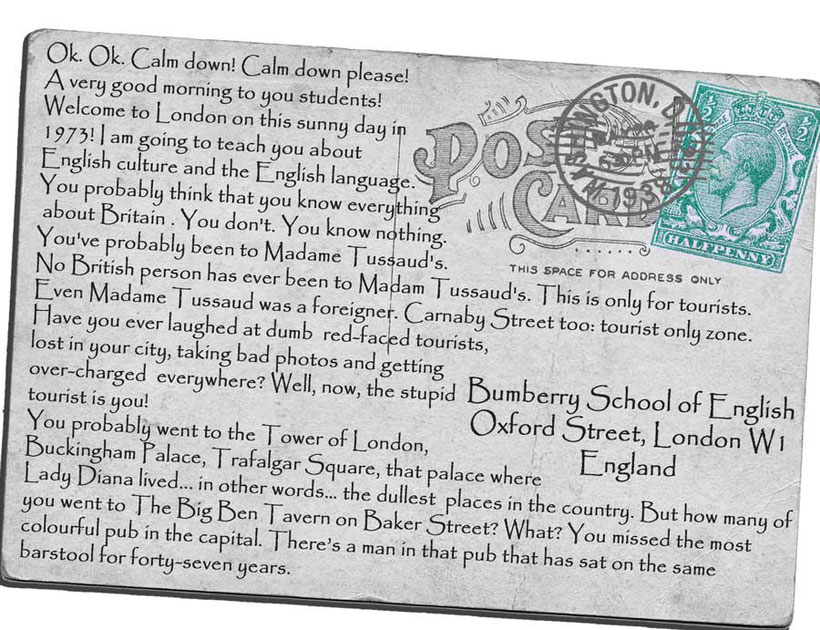 Ok. Ok. Calm down! Calm down please!
A very good morning to you students!
Welcome to London on this sunny day in
1973! I am going to teach you about
English culture and the English language.
You probably think that you know everything
about Britain . You don't. You know nothing.
You've probably been to Madame Tussaud's.
No British person has ever been to Madam Tussaud's. This is only for tourists.
Even Madame Tussaud was a foreigner. Carnaby Street too: tourist only zone.
Have you ever laughed at dumb red-faced tourists,
lost in your city, taking bad photos and getting
over-charged everywhere? Well, now, the stupid
tourist is you!
You probably went to the Tower of London,
Buckingham Palace, Trafalgar Square, that palace where
Lady Diana lived... in other words... the dullest places in the country. But how many of
you went to The Big Ben Tavern on Baker Street? What? You missed the most
colourful pub in the capital. There's a man in that pub that has sat on the same
barstool for forty-seven years.
POST
CARD
THIS SPACE FOR ADDRESS ONLY
WASHINGTON, D.
1938
½ ½
HALFPENNY
Bumberry School of English
Oxford Street, London W1
England